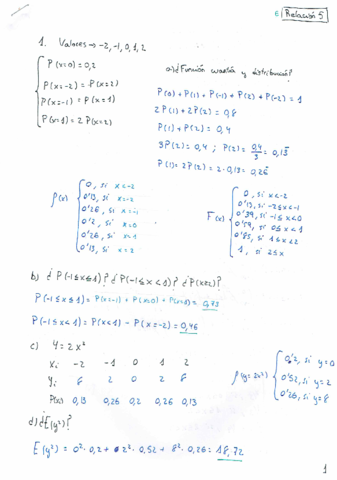 6 Relación 5
1. Valores → -2, -1, 0, 1, 2
P(x=0)=0,2
P(x=-2) = P(x=2)
P(x=-1) = P(x=1)
P(x=1) = 2P(x=2)
a) ¿Función cuantía y distribución?
P(0) + P(1) + P(-1) + P(2) + P(-2) = 1
2P(1) + 2P(2) = 0,8
P(1) + P(2) = 0,4
3P(2) = 0,4 ; P(2) = 0,4/3 = 0,13
P(1) = 2P(2) = 2·0,13 = 0,26
P(x)
0, si x<-2
0'13, si x=-2
0'26, si x=-1
0'2, si x=0
0'26, si x=1
0'13, si x=2
F(x)
0, si x<-2
0'13, si -2≤x<-1
0'39, si -1≤x<0
0'59, si 0≤x<1
0'85, si 1≤x<2
1, si 2≤x
b) ¿P(-1≤x≤1)? ¿P(-1≤x<1)? ¿P(x≥2)?
P(-1≤x≤1) = P(x=-1) + P(x=0) + P(x=1) = 0,73
P(-1≤x<1) = P(x<1) - P(x=-2) = 0,46
c) Y = 2x²
Xi -2 -1 0 1 2
Yi 8 2 0 2 8
P(x) 0,13 0,26 0,2 0,26 0,13
P(y=2x²)
0'2, si y=0
0'52, si y=2
0'26, si y=8
d) ¿E(y²)?
E(y²) = 0²·0,2 + 2²·0,52 + 8²·0,26 = 18,72
1